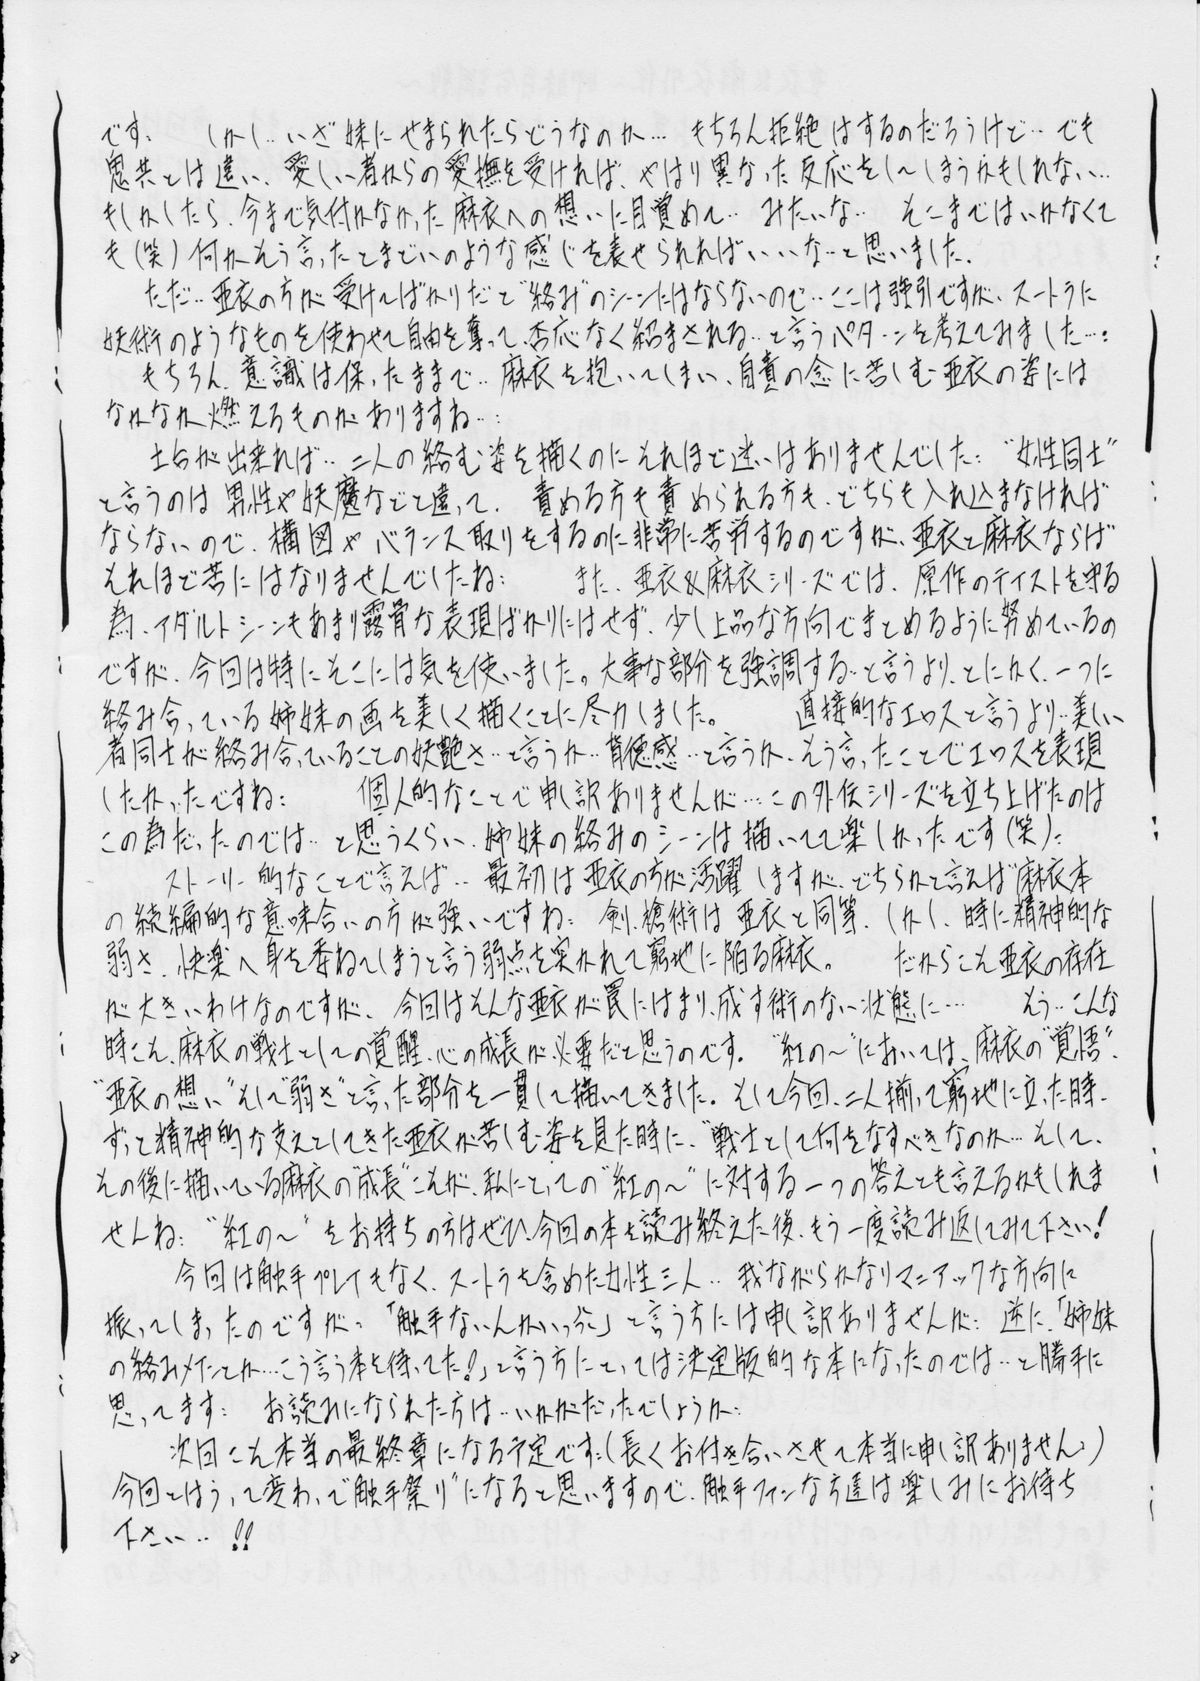 です. しかし‥いざ妹にせまられたらどうなのか… もちろん拒絶はするのだろうけど‥でも
鬼共とは違い、愛しい者からの愛撫を受ければ、やはり異なった反応をし〜しまうかもしれない…
もしかしたら、今まで気付かなかった麻衣への想いに目覚めて‥ みたいな‥ そこまではいかなくて
も(笑)何かそう言ったとまどいのような感じを表せられればいいな‥と思いました.
ただ‥亜衣の方が受けてばかりだと"絡み"のシーンにはならないので‥ここは強引ですが、スートラに
妖術のようなものを使わせて自由を奪って、否応なく絡まされる‥と言うパターンを考えてみました…:
もちろん、意識は保ったままで‥麻衣を抱いてしまい、自責の念に苦しむ亜衣の姿には
なかなか燃えるものがありますね…:
土台が出来れば‥二人の絡む姿を描くのにそれほど迷いはありませんでした: "女性同士"
と言うのは男性や妖魔などと違って、責める方も責められる方も、どちらも入れ込まなければ
ならないので、構図やバランス取りをするのに非常に苦労するのですが、亜衣と麻衣ならば
それほど苦にはなりませんでしたね: また、亜衣&麻衣シリーズでは、原作のテイストを守る
為、アダルトシーンもあまり露骨な表現ばかりにはせず、少し上品な方向でまとめるように努めているの
ですが、今回は特にそこには気を使いました。大事な部分を強調する‥と言うより、とにかく、一つに
絡み合っている姉妹の画を美しく描くことに尽力しました。 直接的なエロスと言うより‥美しい
者同士が絡み合っていることの妖艶さ‥と言うか‥背徳感‥と言うか、そう言ったことでエロスを表現
したかったですね: 個人的なことで申し訳ありませんが…この外伝シリーズを立ち上げたのは
この為だったのでは‥と思うくらい、姉妹の絡みのシーンは描いてて楽しかったです(笑):
ストーリー的なことで言えば‥最初は亜衣の方が活躍しますが、どちらかと言えば"麻衣本"
の続編的な意味合いの方が強いですね: 剣、槍術は亜衣と同等、しかし、時に精神的な
弱さ、快楽へ身を委ねてしまうと言う弱点を突かれて窮地に陥る麻衣。 だからこそ亜衣の存在
が大きいわけなのですが、今回はそんな亜衣が罠にはまり、成す術のない状態に… もう‥こんな
時こそ、麻衣の戦士としての覚醒、心の成長が必要だと思うのです。"紅の〜"においては、麻衣の"覚悟"、
"亜衣の想い"そして"弱さ"と言った部分を一貫して描いてきました。そして今回、二人揃って窮地に立った時、
ずっと精神的な支えとしてきた亜衣が苦しむ姿を見た時に、"戦士として何をなすべきなのか…そして、
その後に描いている麻衣の"成長"こそが、私にとっての"紅の〜"に対する一つの答えとも言えるかもしれま
せんね: "紅の〜"をお持ちの方はぜひ、今回の本を読み終えた後、もう一度読み返してみて下さい!
今回は触手プレイもなく、スートラを含めた女性三人‥我ながらかなりマニアックな方向に
振ってしまったのですが: 「触手ないんかいっ」と言う方には申し訳ありませんが: 逆に、「姉妹
の絡みメインとか…こう言う本を待ってた!」と言う方にとっては決定版的な本になったのでは…と勝手に
思ってます: お読みになられた方は‥いかがだったでしょうか:
次回こそ本当の最終章になる予定です:(長くお付き合いさせて本当に申し訳ありません:)
今回とはうって変わって"触手祭り"になると思いますので、触手ファンな方達は楽しみにお待ち
下さい‥!!
8